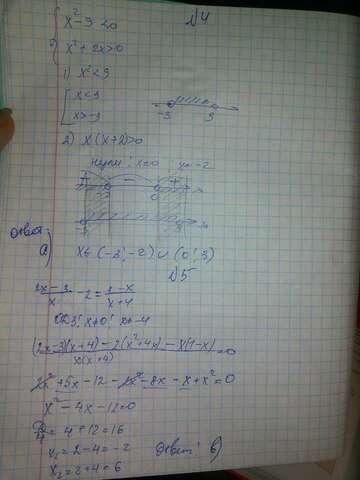 №4
x² - 9 < 0
x² + 2x > 0
1) x² < 9
x < 3
x > -3
-3 3
2) x(x+2) > 0
нули: x=0 x=-2
+ - +
-2 0 x
-3 3 x
Ответ:
а) x ∈ (-3; -2) ∪ (0; 3)
№5
(2x-3)/x - 2 = (1-x)/(x+4)
ОДЗ: x≠0; x≠-4
((2x-3)(x+4) - 2(x²+4x) - x(1-x))/(x(x+4)) = 0
2x² + 5x - 12 - 2x² - 8x - x + x² = 0
x² - 4x - 12 = 0
D/4 = 4 + 12 = 16
x₁ = 2 - 4 = -2
x₂ = 2 + 4 = 6
Ответ: в)